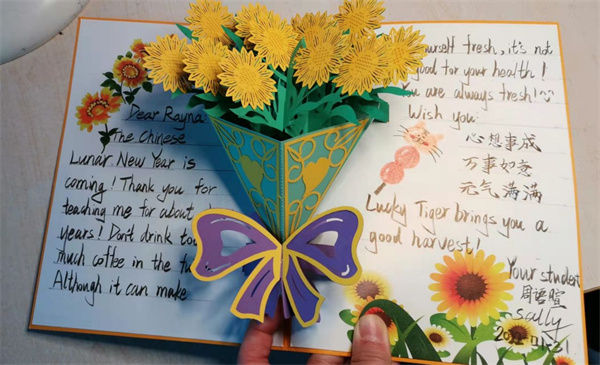 Dear Rayna
The Chinese
Lunar New Year is
coming! Thank you for
teaching me for about
years! Don't drink too
much coffee in the
Although it can make
yourself fresh, it's not
good for your health!
You are always fresh!
Wish you:
心想事成
万事如意
元气满满
Lucky Tiger brings you a
good harvest!
Your student
周语瑄
Sally